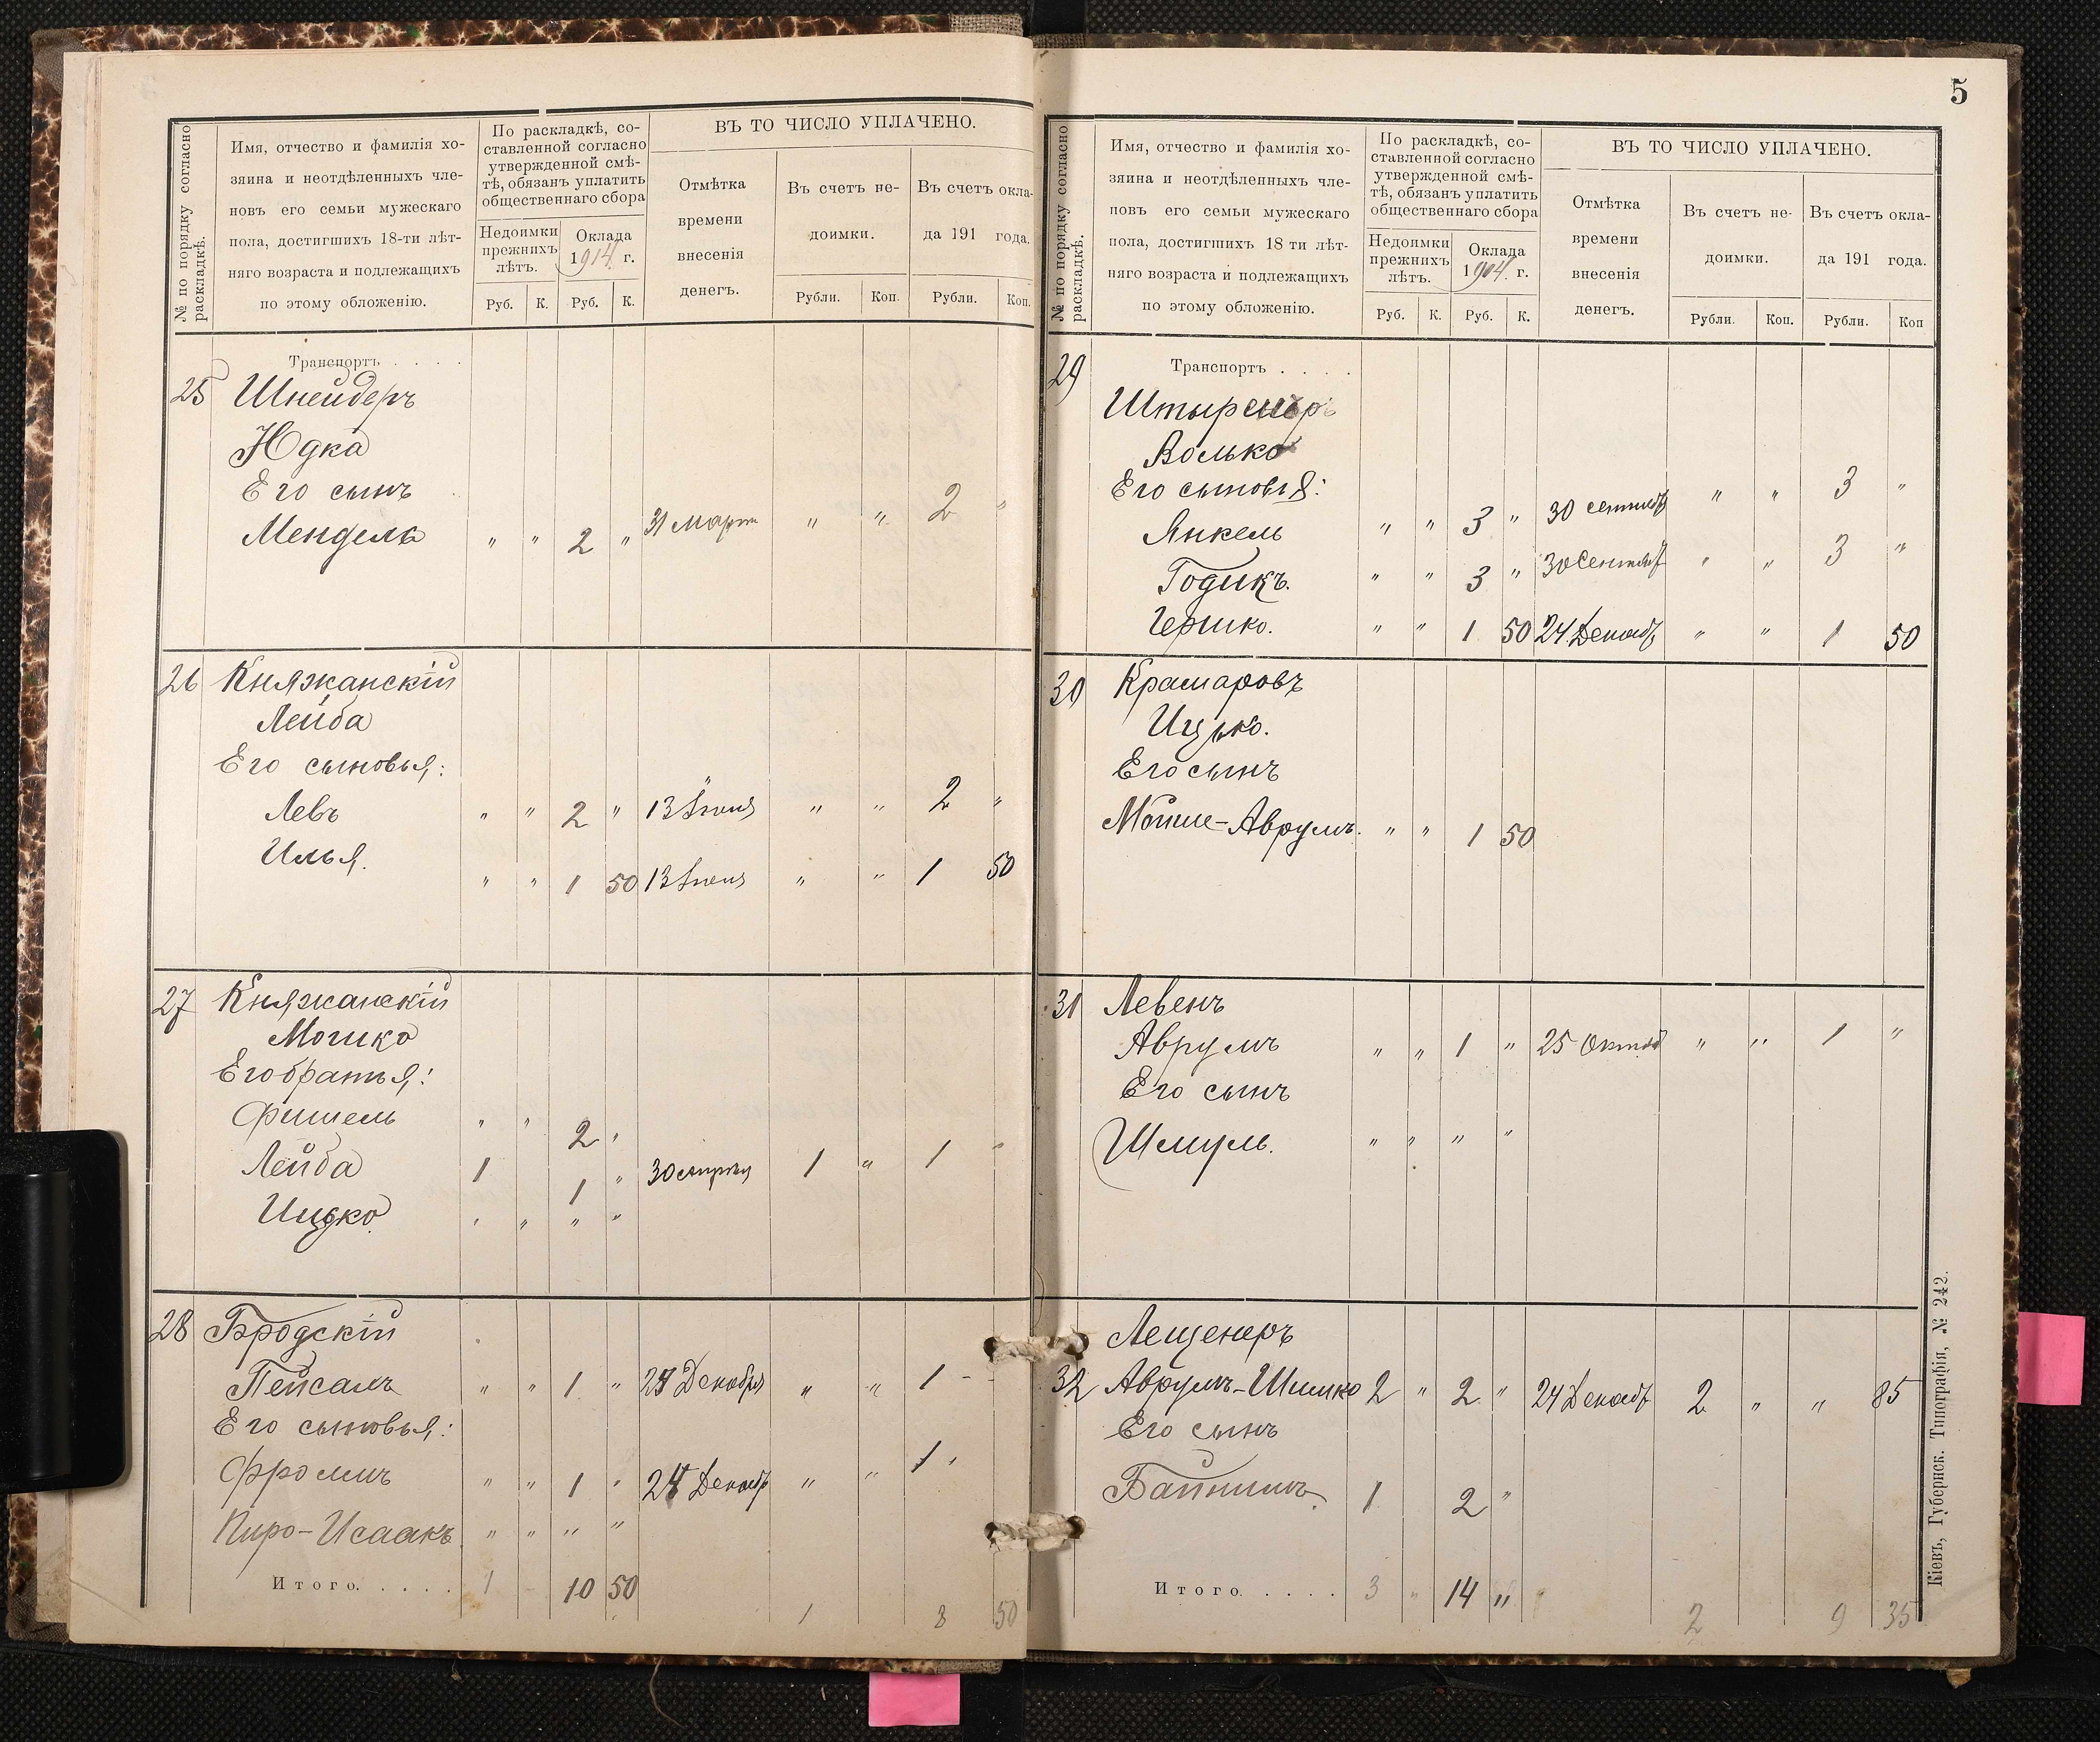 № по порядку согласно раскладкѣ.
Имя, отчество и фамилія хо-
зяина и неотдѣленныхъ чле-
новъ его семьи мужескаго
пола, достигшихъ 18-ти лѣт-
няго возраста и подлежащихъ
по этому обложенію.
По раскладкѣ, со-
ставленной согласно
утвержденной смѣ-
тѣ, обязанъ уплатить
общественнаго сбора
Недоимки
прежнихъ
лѣтъ.
Оклада
1914 г.
Руб. К. Руб. К.
ВЪ ТО ЧИСЛО УПЛАЧЕНО.
Отмѣтка
времени
внесенія
денегъ.
Въ счетъ не-
доимки.
Въ счетъ окла-
да 191 года.
Рубли. Коп. Рубли. Коп.
Транспортъ . . . .
25 Шнейдеръ
Юдка
Его сынъ
Мендель " " 2 " 31 Марта " " 2 "
26 Княжанскій
Лейба
Его сыновья:
Левъ " " 2 " 13 Іюня " " 2 "
Илья. " " 1 50 13 Іюня " " 1 50
27 Княжанскій
Мошко
Его братья:
Фишель " " 2 "
Лейба 1 1 " 30 апрѣля 1 " 1 "
Ицько. " " " "
28 Бродскій
Пейсахъ " " 1 " 24 Декабря " " 1 - -
Его сыновья:
Фроимъ " " 1 " 24 Декабр " " 1 "
-Исаакъ " " " "
Итого. . . . . 1 - 10 50
1 8 50
5
№ по порядку согласно раскладкѣ.
Имя, отчество и фамилія хо-
зяина и неотдѣленныхъ чле-
новъ его семьи мужескаго
пола, достигшихъ 18 ти лѣт-
няго возраста и подлежащихъ
по этому обложенію.
По раскладкѣ, со-
ставленной согласно
утвержденной смѣ-
тѣ, обязанъ уплатить
общественнаго сбора
Недоимки
прежнихъ
лѣтъ.
Оклада
1904 г.
Руб. К. Руб. К.
ВЪ ТО ЧИСЛО УПЛАЧЕНО.
Отмѣтка
времени
внесенія
денегъ.
Въ счетъ не-
доимки.
Въ счетъ окла-
да 191 года.
Рубли. Коп. Рубли. Коп
29 Транспортъ . . . .
Волько
Его сыновья:
Янкель " " 3 " 30 сентябр " " 3 "
Годикъ. " " 3 " 30 Сентябр " " 3 "
Гершко. " " 1 50 24 Декабр " " 1 50
30 Крамаровъ
Ицько.
Его сынъ
Мойше-Аврумъ. " " 1 50
31 Левенъ
Аврумъ " " 1 " 25 Октяб " " 1 "
Его сынъ
Шмуль. " " " "
Лещенеръ
32 Аврумъ-Шимко 2 " 2 " 24 Декабр 2 " " 85
Его сынъ
Байнишъ. 1 2 "
Итого. . . . . 3 " 14 "
2 9 35
Кіевъ, Губернск. Типографія, № 242.